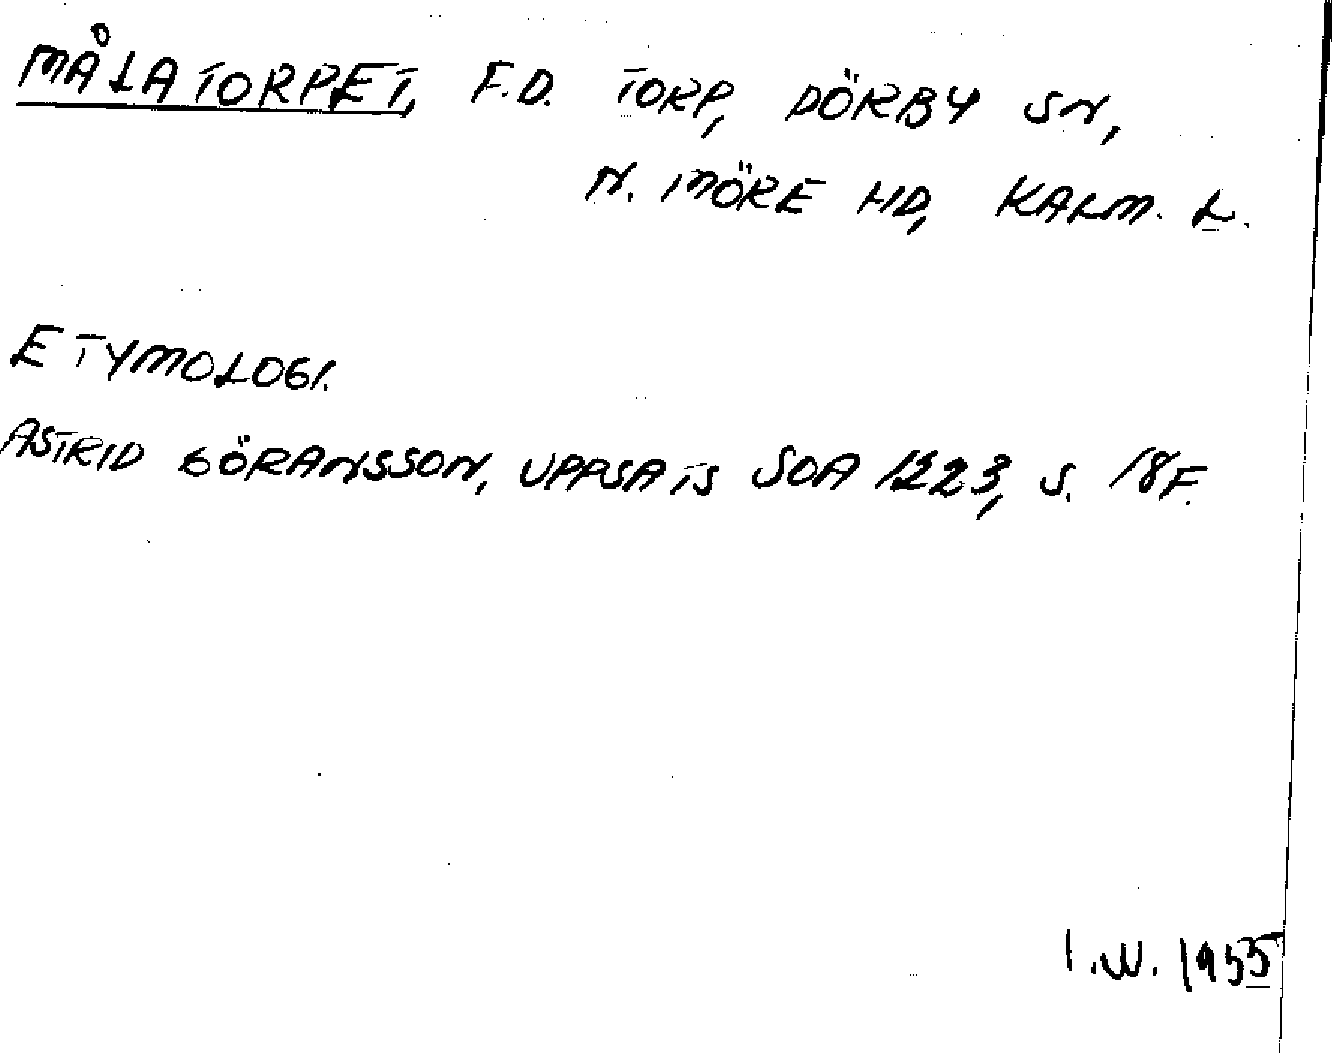 MÅLATORPET, F.D. TORP, DÖRBY SN,
N. MÖRE HD, KALM. L.
ETYMOLOGI.
ASTRID GÖRANSSON, UPPSATS SOA 1223, S. 18F.
I.W. 1955